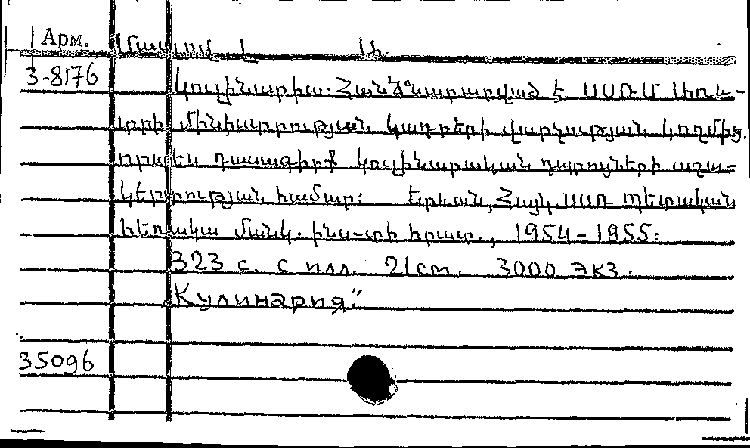 Арм.
3-8176 Կուլինարիա. Հանձնարարված է ՍՍՌՄ Առև-
տրի մինիստրության կադրերի վարչության կողմից
որպես դասագիրք կուլինարական դպրոցների աշա-
կերտության համար: Երևան, Հայկ. ՍՍՌ պետական
հեռակա մանկ. ինս-տի հրատ., 1954-1955:
323 с. с илл. 21 cm. 3000 экз.
"Кулинария"
35096